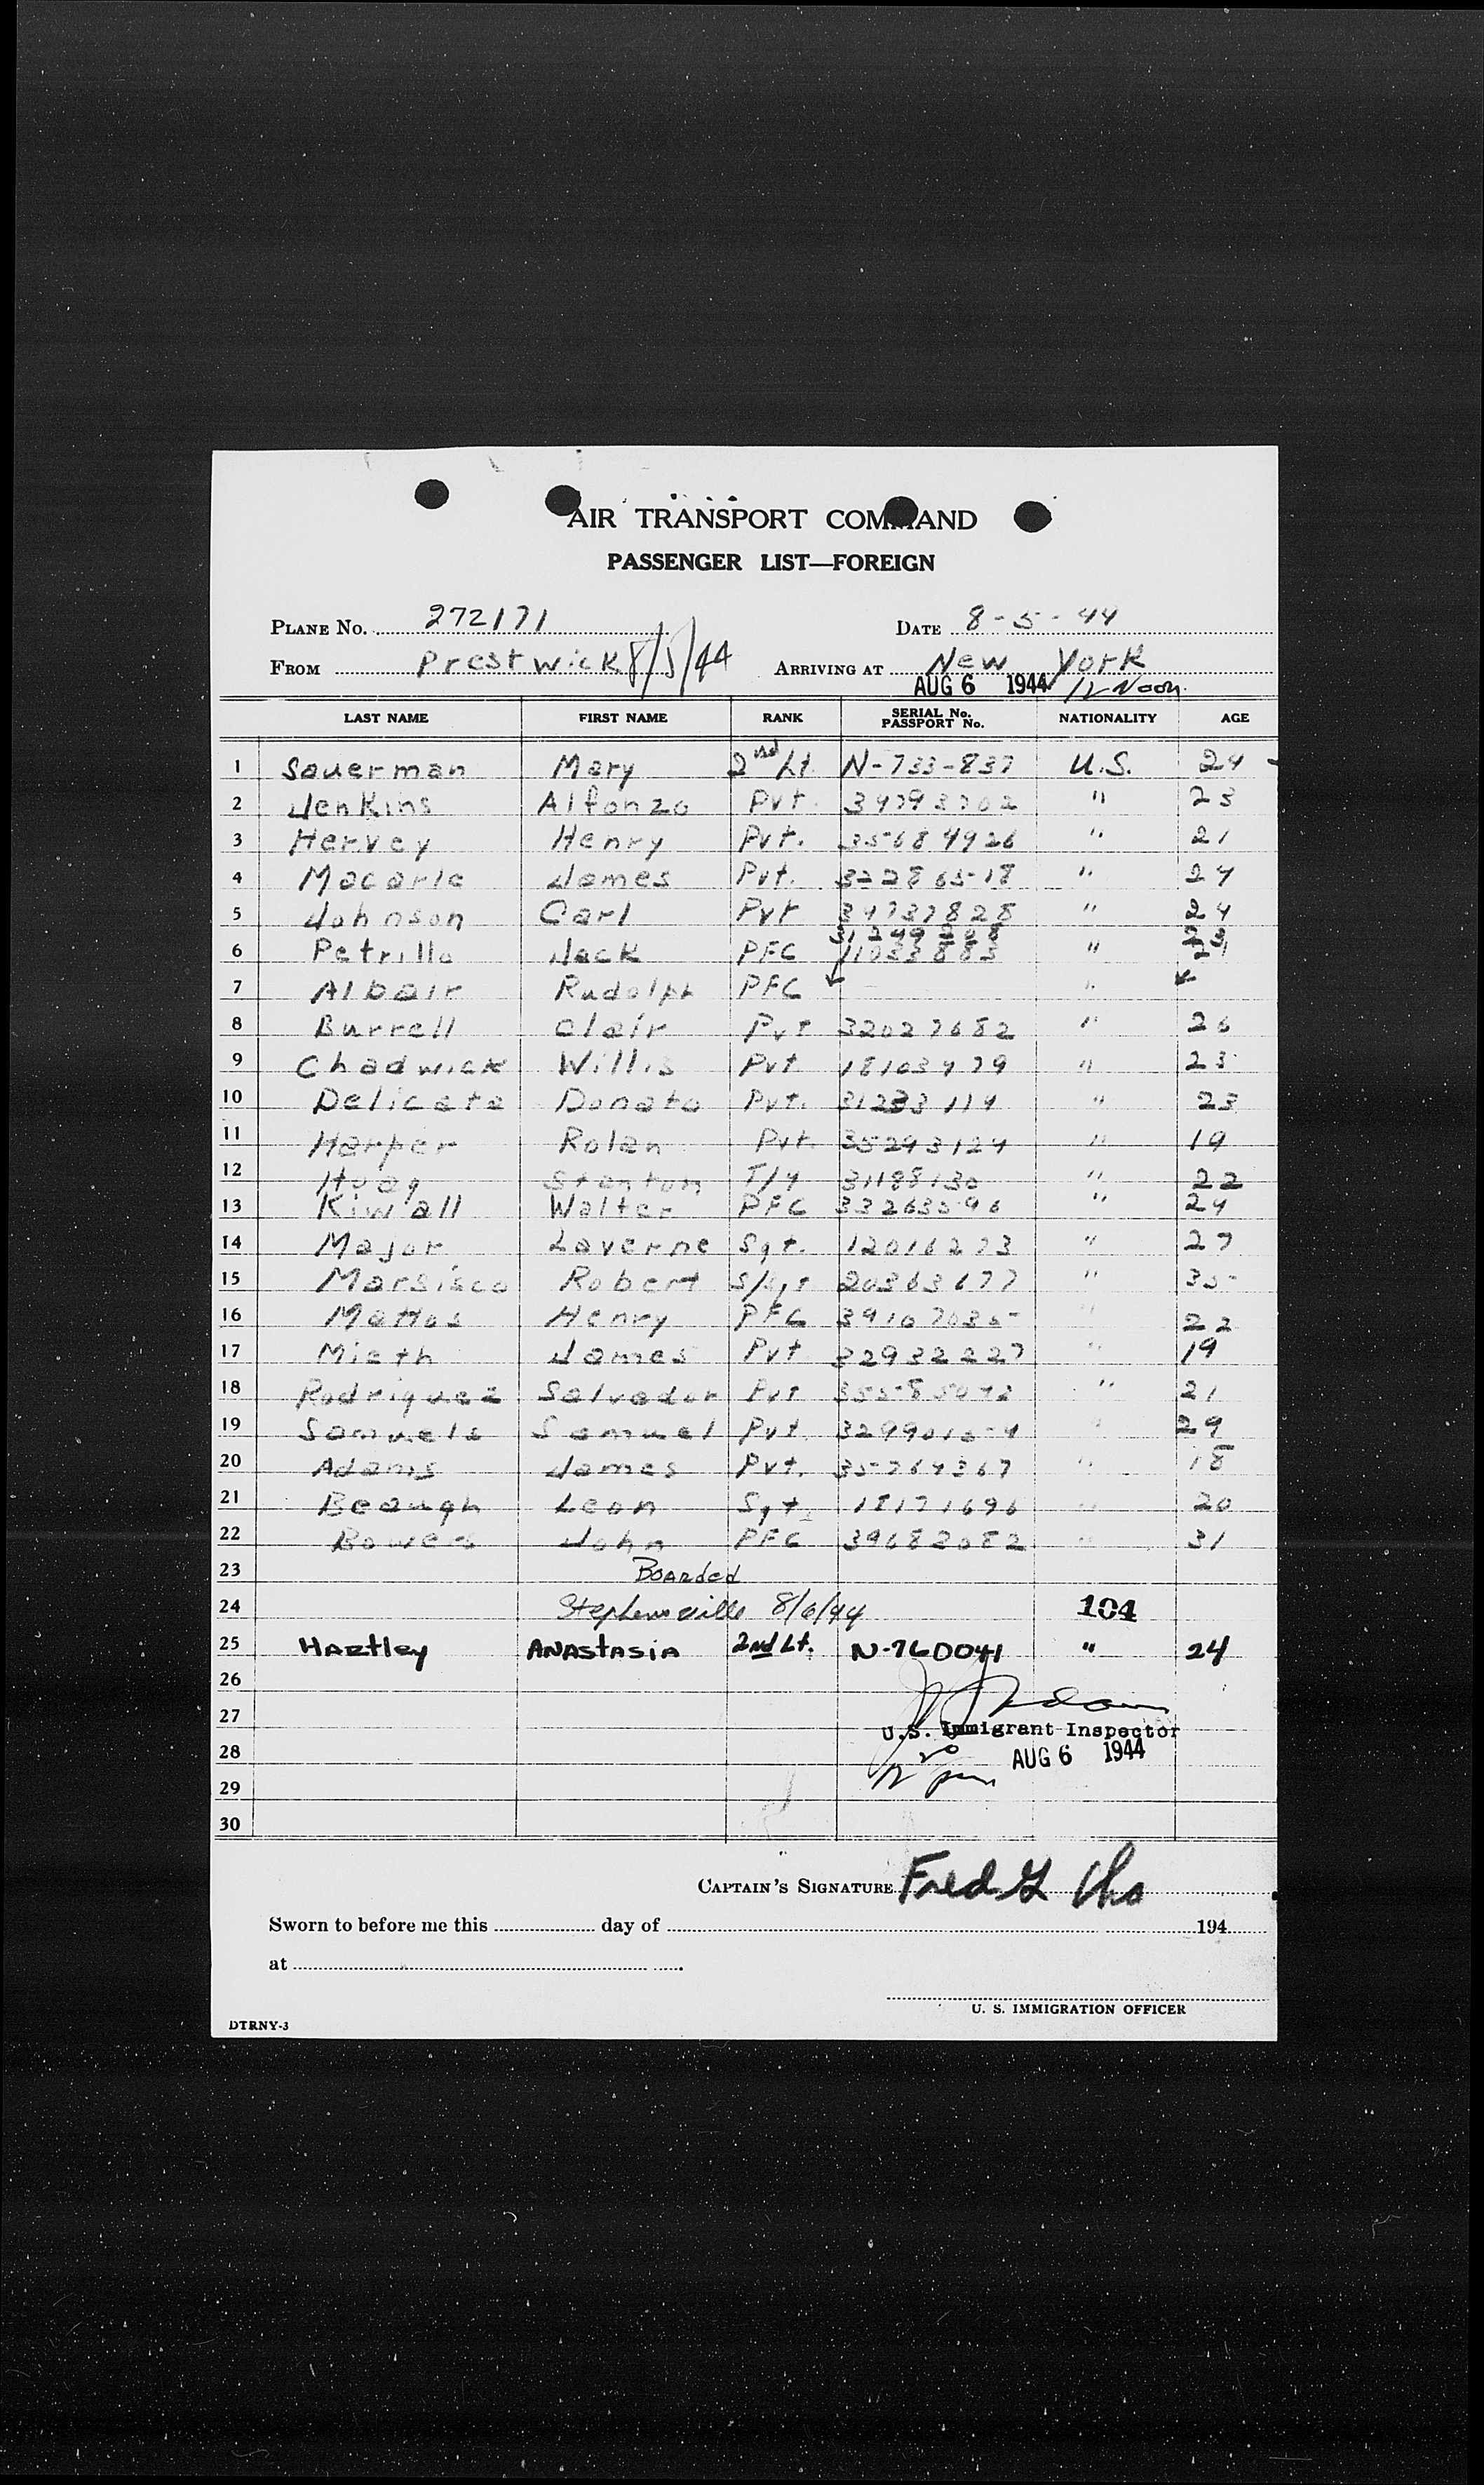 AIR TRANSPORT COMMAND
PASSENGER LIST—FOREIGN
PLANE No. 272171 DATE 8-5-44
FROM Prestwick 8/5/44 ARRIVING AT New York
AUG 6 1944 12 Noon
LAST NAME FIRST NAME RANK SERIAL No. PASSPORT No. NATIONALITY AGE
1 Sauerman Mary 2nd Lt. N-733-837 U.S. 24
2 Jenkins Alfonzo Pvt. 34793702 " 23
3 Hervey Henry Pvt. 35684926 " 21
4 Macarle James Pvt. 32286518 " 24
5 Johnson Carl Pvt 34737828 " 24
31249208 23
6 Petrillo Jack PFC 11033883 " 21
7 Albair Rudolph PFC "
8 Burrell Clair Pvt 32027682 " 26
9 Chadwick Willis Pvt 18103479 " 23
10 Delicata Donato Pvt. 31233114 " 23
11 Harper Rolan Pvt. 35293124 " 19
12 Stanton T/4 31188130 " 22
13 Kiwall Walter PFC 33263596 " 24
14 Major Laverne Sgt. 12016273 " 27
15 Marsisco Robert S/Sgt 20363677 " 35
16 Mattos Henry PFC 39107035 " 22
17 Mieth James Pvt 32932227 " 19
18 Rodriquez Salvador Pvt " 21
19 Samuels Samuel Pvt. " 29
20 Adams James Pvt. 35764367 " 18
21 Beaugh Leon Sgt. 18171696 " 20
22 Bowers John PFC 39682082 " 31
23 Boarded
24 Stephensville 8/6/44 104
25 HARtley ANAStASiA 2nd Lt. N-760041 " 24
26
27 U.S. Immigrant Inspector
28 AUG 6 1944
12 20 pm
29
30
CAPTAIN'S SIGNATURE Fred G
Sworn to before me this day of 194
at
U. S. IMMIGRATION OFFICER
DTRNY-3